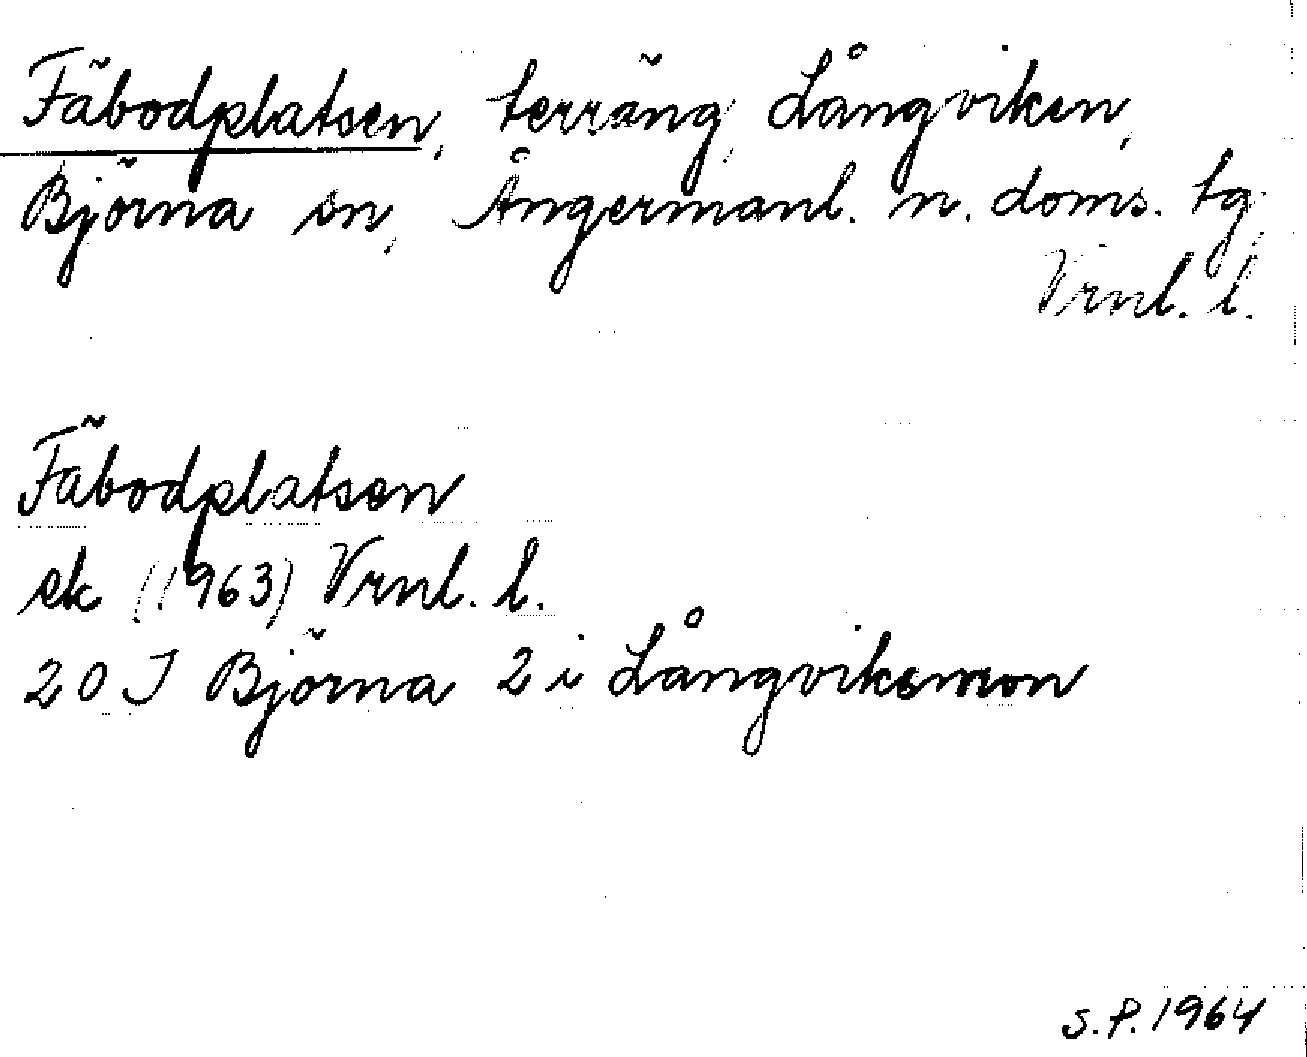 Fäbodplatsen, terräng, Långviken,
Björna sn, Ångermanl. n. doms. tg,
Vrnl. l.
Fäbodplatsen
ek (1963) Vrnl. l.
20 J Björna 2 i Långviksmon
S.P. 1964